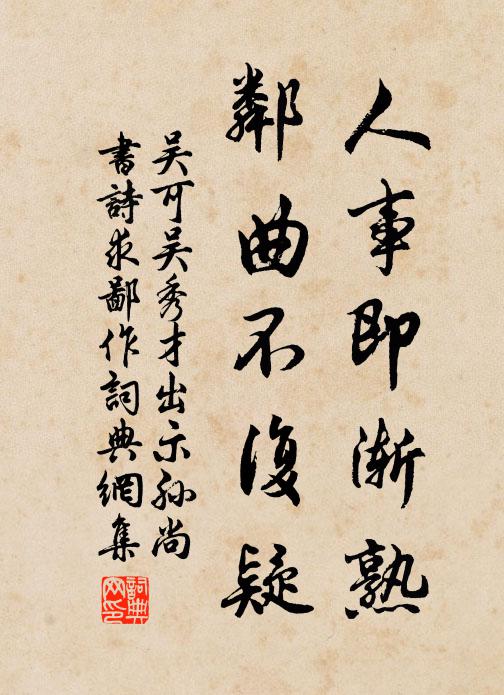 人事即漸熟
鄰曲不復疑
吳可吳秀才出示孙尚
書詩求鄙作詞典網集
詞典
网印